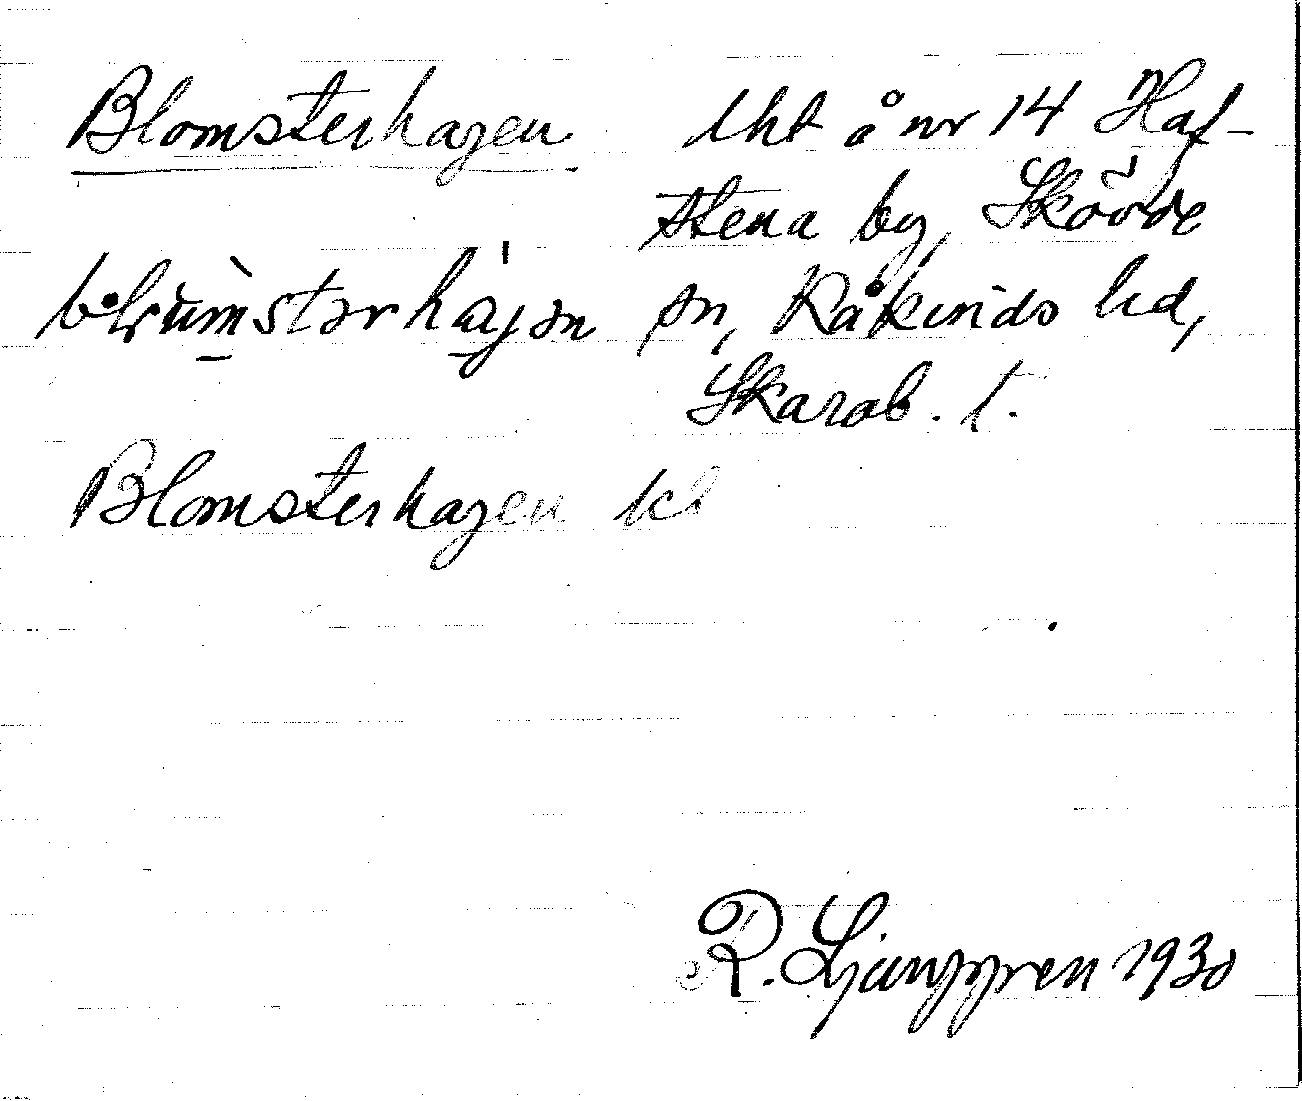 Blomsterhagen
lht å nr 14 Haf-
stena by, Skövde
sn, Kåkinds hd,
Skarab. l.
Blomsterhagen kl
R. Ljunggren 1930